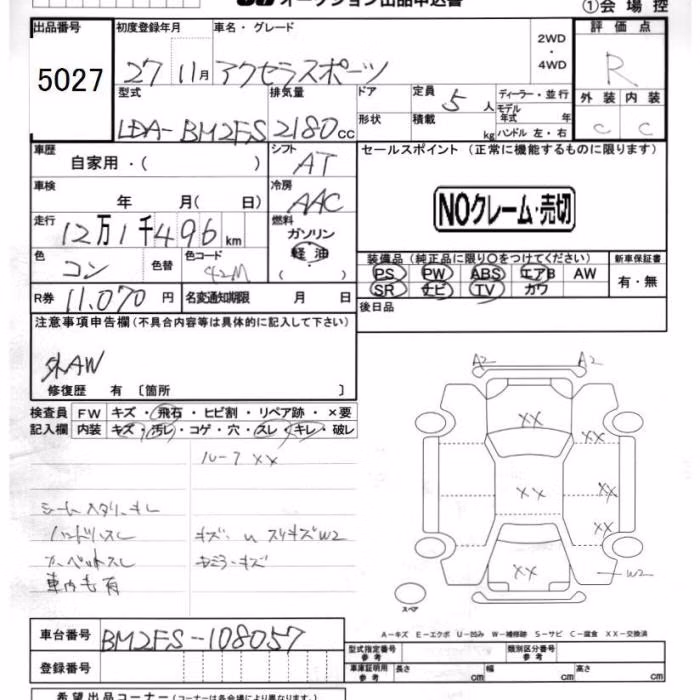 オークション出品申込書
①会場控
出品番号 初度登録年月 車名・グレード 2WD・4WD 評価点
5027 27 11月 アクセラスポーツ R
型式 排気量 ドア 定員 5人 ディーラー・並行 外装 内装
LDA-BM2FS 2180cc 形状 積載 kg モデル年式 年 ハンドル 左・右 C C
車歴 自家用・( ) シフト AT セールスポイント (正常に機能するものに限ります)
車検 年 月( 日) 冷房 AAC NOクレーム・売切
走行 12万1千496km 燃料 ガソリン 軽油 ( )
色 コン 色替 色コード 42M 装備品 (純正品に限り○をつけてください) 新車保証書
PS PW ABS エアB AW 有・無
SR ナビ TV カワ
R券 11,070円 名変通知期限 月 日 後日品
注意事項申告欄 (不具合内容等は具体的に記入して下さい)
外AW
修復歴 有 〔箇所 〕
検査員記入欄 FW キズ・飛石・ヒビ割・リペア跡・×要
内装 キズ・汚レ・コゲ・穴・スレ・キレ・破レ
ルーフ XX
シート スタリ キレ
ハンドルスレ
カーペットスレ
車内も有
キズ
スリキズW2
ミラーキズ
A2 A2
XX
XX
XX XX
XX
XX
W2
スペア
A-キズ E-エクボ U-凹み W-補修跡 S-サビ C-腐食 XX-交換済
車台番号 BM2FS-108057
登録番号
型式指定番号 参考 類別区分番号 参考
車庫証明用 参考 長さ cm 幅 cm 高さ cm
希望出品コーナー (コーナーは各会場により異なります。)